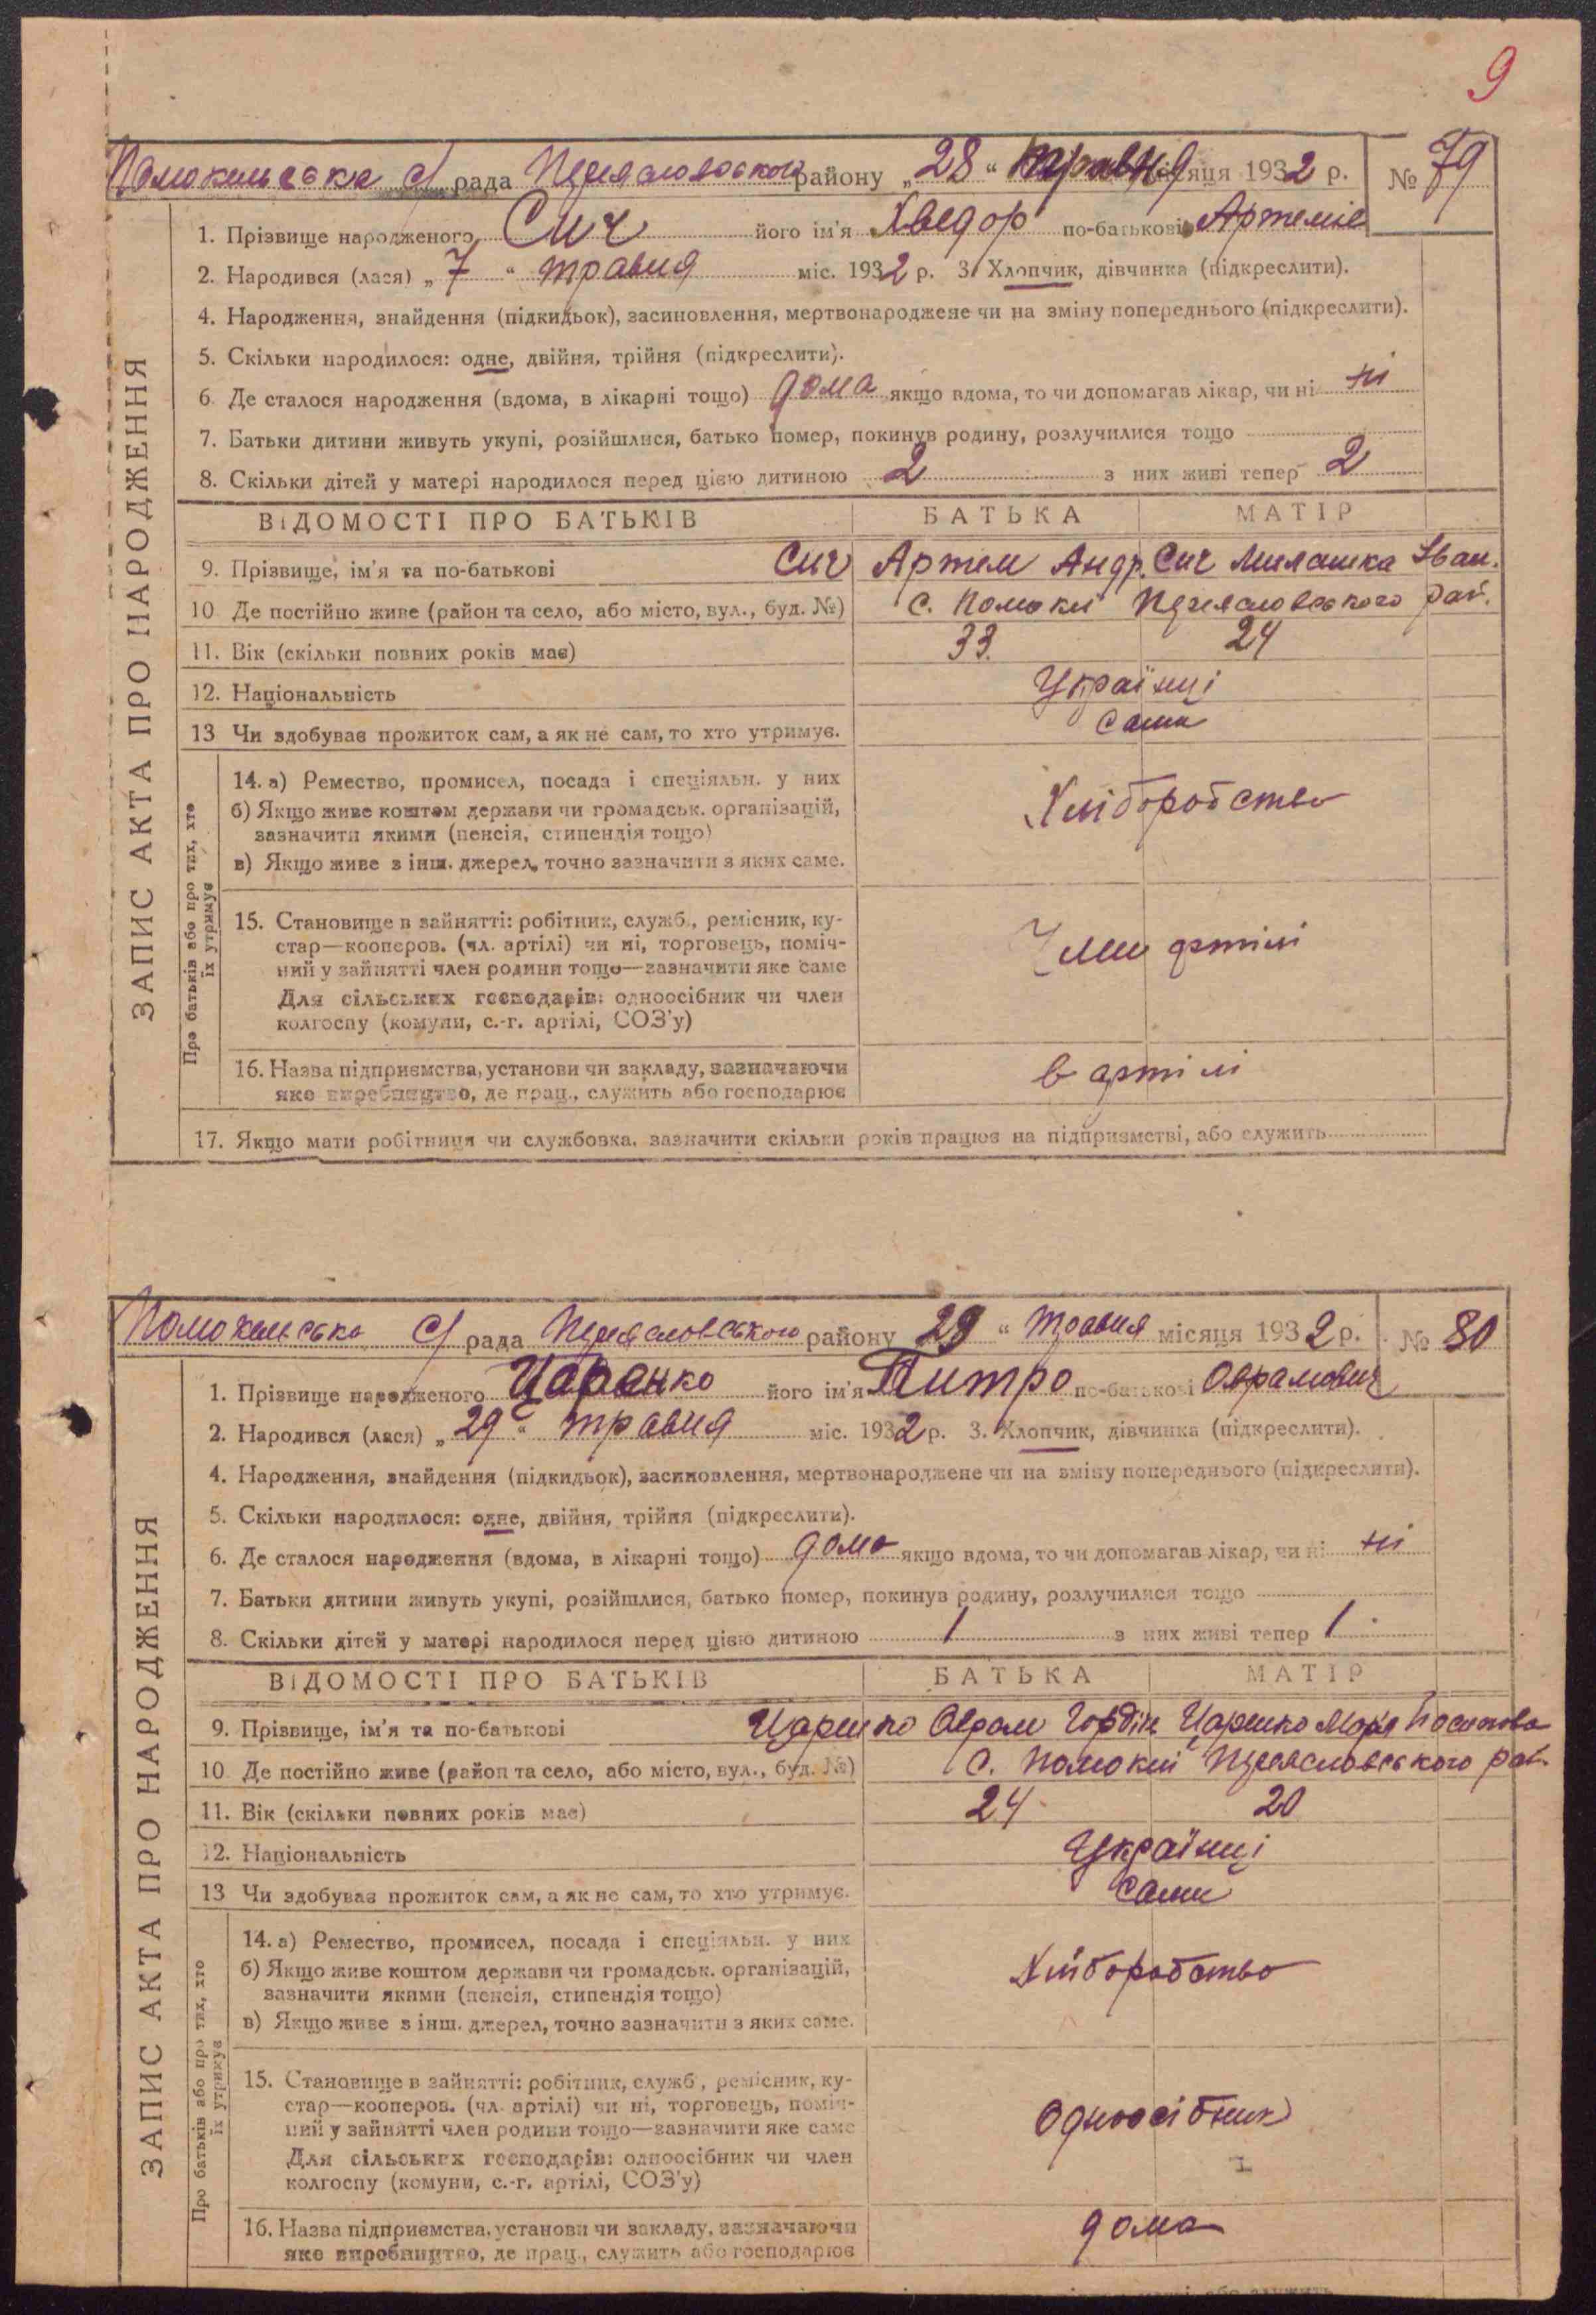 9
Помокельська с/ рада Переяславського району „28“ травня місяця 1932 р. № 79
1. Прізвище народженого Сич його ім'я Хведор по-батькові Артеміє
2. Народився (лася) „7“ травня міс. 1932 р. 3. Хлопчик, дівчинка (підкреслити).
4. Народження, знайдення (підкидьок), засиновлення, мертвонароджене чи на зміну попереднього (підкреслити).
5. Скільки народилося: одне, двійня, трійня (підкреслити).
6. Де сталося народження (вдома, в лікарні тощо) дома якщо вдома, то чи допомагав лікар, чи ні ні
7. Батьки дитини живуть укупі, розійшлися, батько помер, покинув родину, розлучилися тощо
8. Скільки дітей у матері народилося перед цією дитиною 2 з них живі тепер 2
ВІДОМОСТІ ПРО БАТЬКІВ БАТЬКА МАТІР
9. Прізвище, ім'я та по-батькові Сич Артем Андр. Сич Милашка Іван.
10 Де постійно живе (район та село, або місто, вул., буд. №) с. Помокли Переяславського рай.
11. Вік (скільки повних років має) 33. 24
12. Національність Українці
13 Чи здобував прожиток сам, а як не сам, то хто утримує. Сами
14. а) Ремество, промисел, посада і спеціяльн. у них
б) Якщо живе коштом держави чи громадськ. організацій,
зазначити якими (пенсія, стипендія тощо)
в) Якщо живе з інш. джерел, точно зазначити з яких саме.
Хліборобство
15. Становище в зайнятті: робітник, служб., ремісник, ку-
стар—кооперов. (чл. артілі) чи ні, торговець, поміч-
ний у зайнятті член родини тощо—зазначити яке саме
Для сільських господарів: одноосібник чи член
колгоспу (комуни, с.-г. артілі, СОЗ'у)
Член артілі
16. Назва підприємства, установи чи закладу, зазначаючи
яке виробництво, де прац., служить або господарює
в артілі
17. Якщо мати робітниця чи службовка, зазначити скільки років працює на підприємстві, або служить
ЗАПИС АКТА ПРО НАРОДЖЕННЯ
Про батьків або про тих, хто
їх утримує
Помокельська с/ рада Переяславського району 29 “ травня місяця 1932 р. № 80
1. Прізвище народженого Царенко його ім'я Питро по-батькові Оврамович
2. Народився (лася) „29“ травня міс. 1932 р. 3. Хлопчик, дівчинка (підкреслити).
4. Народження, знайдення (підкидьок), засиновлення, мертвонароджене чи на зміну попереднього (підкреслити).
5. Скільки народилося: одне, двійня, трійня (підкреслити).
6. Де сталося народження (вдома, в лікарні тощо) дома якщо вдома, то чи допомагав лікар, чи ні ні
7. Батьки дитини живуть укупі, розійшлися, батько помер, покинув родину, розлучилися тощо
8. Скільки дітей у матері народилося перед цією дитиною 1 з них живі тепер 1
ВІДОМОСТІ ПРО БАТЬКІВ БАТЬКА МАТІР
9. Прізвище, ім'я та по-батькові Царенко Оврам Гордін Царенко Мар'я Йосипова
10 Де постійно живе (район та село, або місто, вул., буд. №) с. Помокли Переяславського рай.
11. Вік (скільки повних років має) 24 20
12. Національність Українці
13 Чи здобував прожиток сам, а як не сам, то хто утримує. Сами
14. а) Ремество, промисел, посада і спеціяльн. у них
б) Якщо живе коштом держави чи громадськ. організацій,
зазначити якими (пенсія, стипендія тощо)
в) Якщо живе з інш. джерел, точно зазначити з яких саме.
Хліборобство
15. Становище в зайнятті: робітник, служб., ремісник, ку-
стар—кооперов. (чл. артілі) чи ні, торговець, поміч-
ний у зайнятті член родини тощо—зазначити яке саме
Для сільських господарів: одноосібник чи член
колгоспу (комуни, с.-г. артілі, СОЗ'у)
Одноосібник
16. Назва підприємства, установи чи закладу, зазначаючи
яке виробництво, де прац., служить або господарює
дома
ЗАПИС АКТА ПРО НАРОДЖЕННЯ
Про батьків або про тих, хто
їх утримує